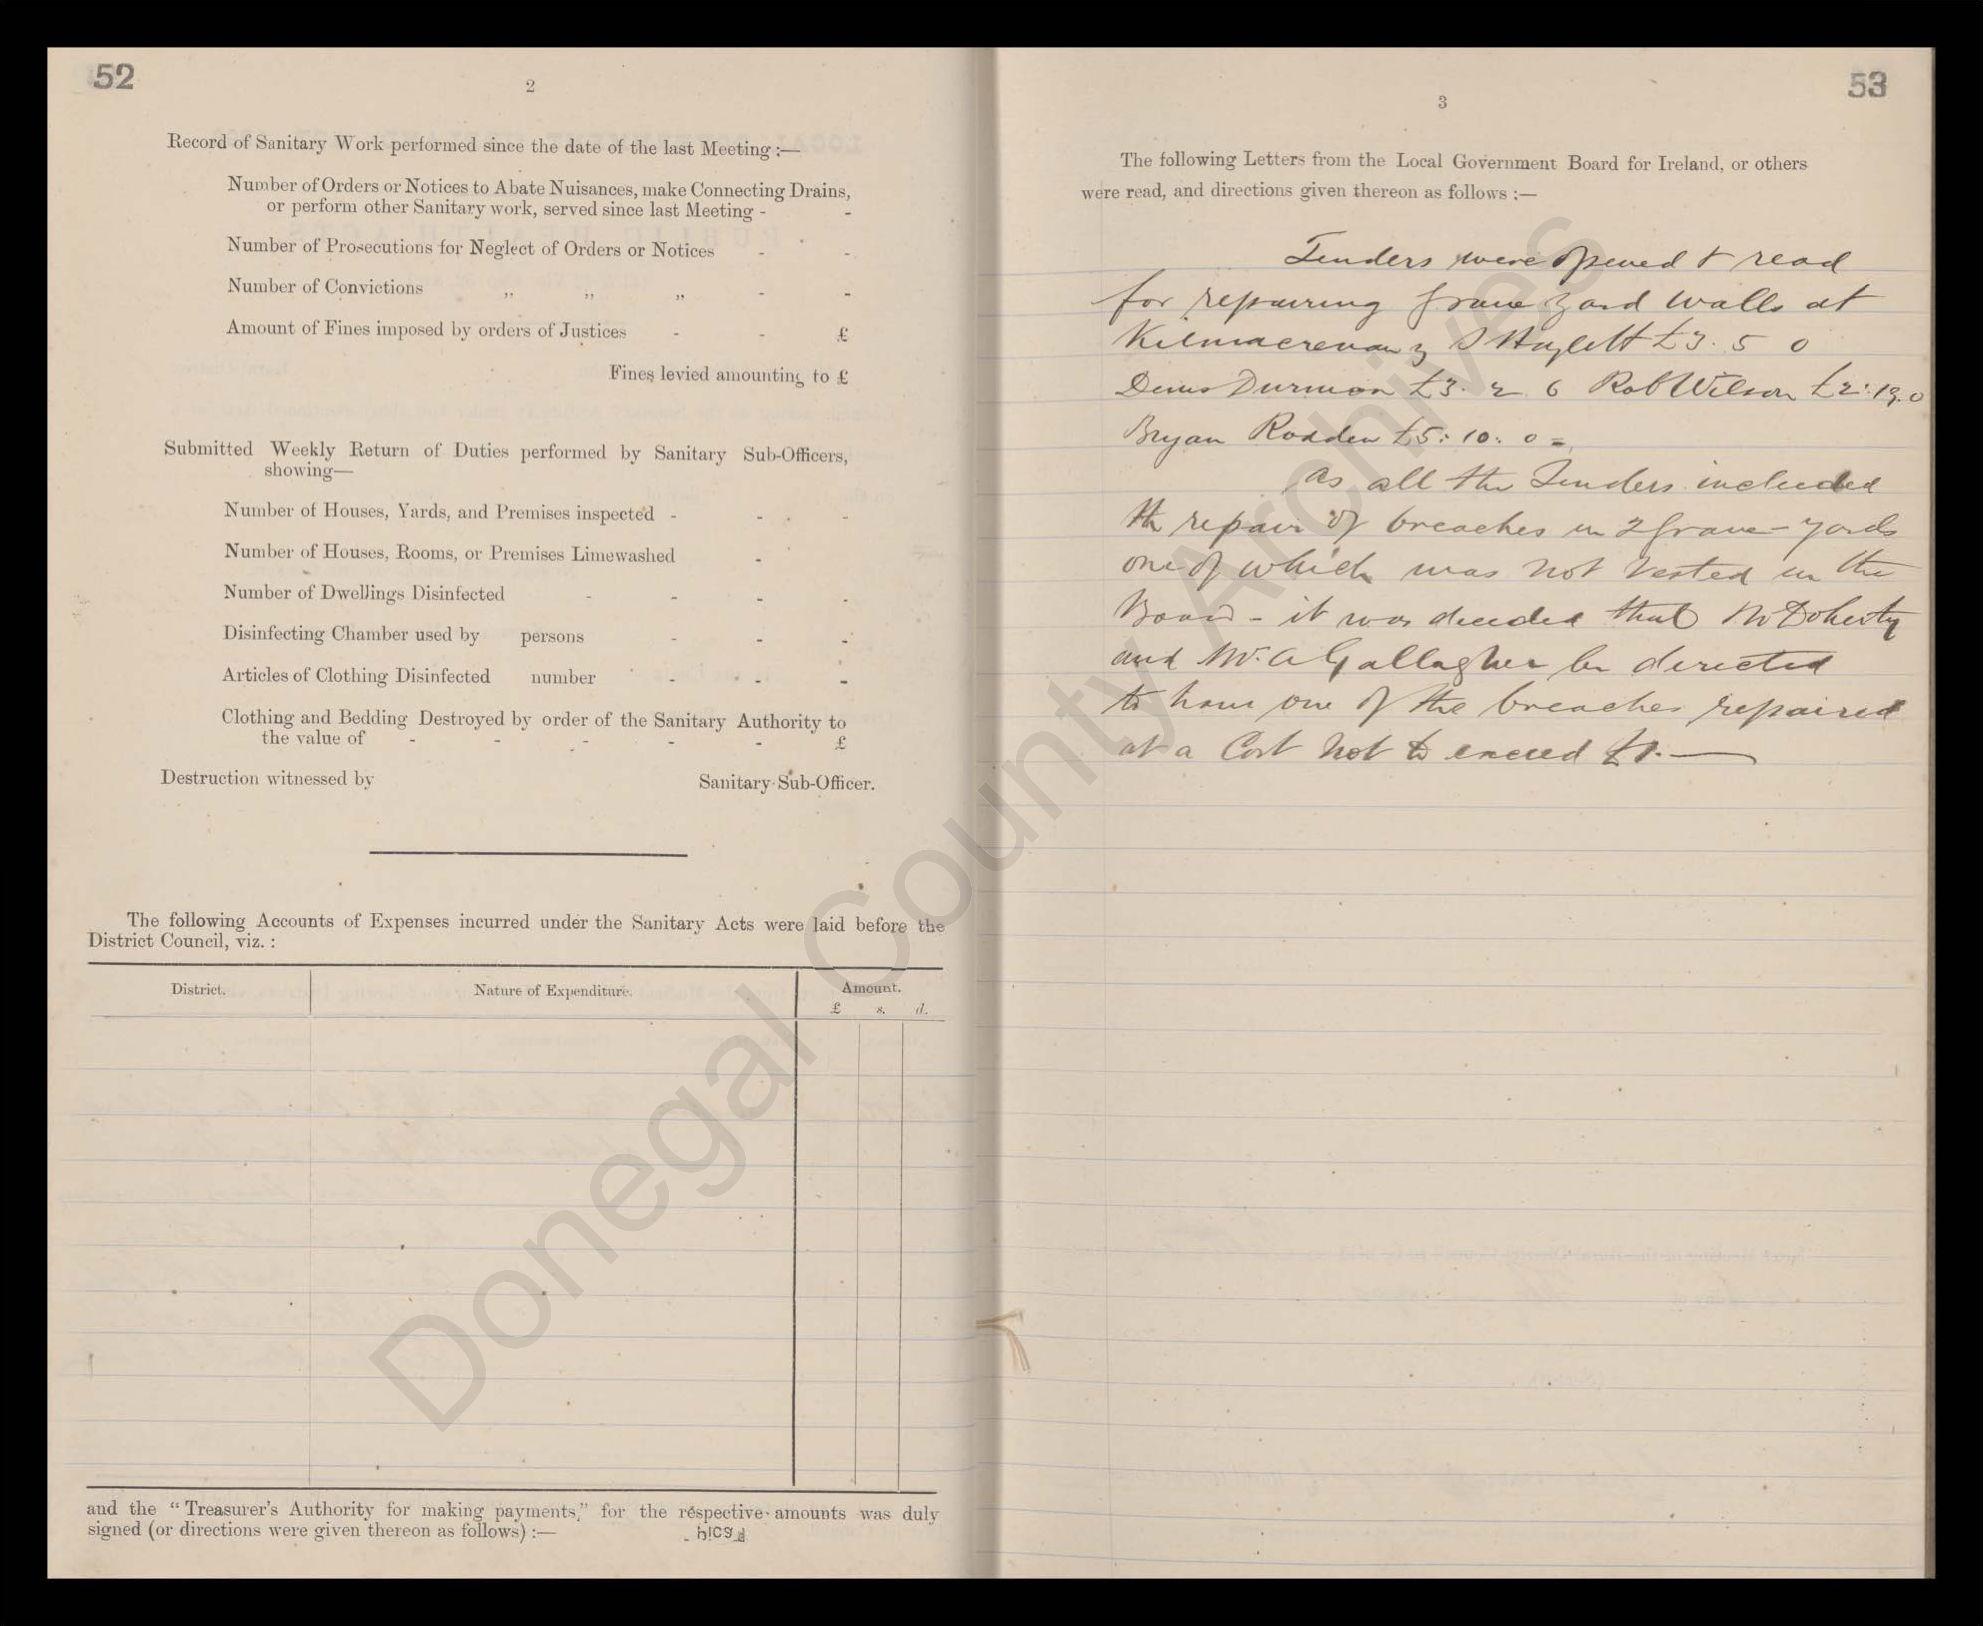 52
2
Record of Sanitary Work performed since the date of the last Meeting :—
Number of Orders or Notices to Abate Nuisances, make Connecting Drains,
or perform other Sanitary work, served since last Meeting - -
Number of Prosecutions for Neglect of Orders or Notices - -
Number of Convictions ,, ,, ,, - -
Amount of Fines imposed by orders of Justices - - £
Fines levied amounting to £
Submitted Weekly Return of Duties performed by Sanitary Sub-Officers,
showing—
Number of Houses, Yards, and Premises inspected - - -
Number of Houses, Rooms, or Premises Limewashed -
Number of Dwellings Disinfected - - - -
Disinfecting Chamber used by persons - - -
Articles of Clothing Disinfected number - - -
Clothing and Bedding Destroyed by order of the Sanitary Authority to
the value of - - - - - £
Destruction witnessed by Sanitary Sub-Officer.
The following Accounts of Expenses incurred under the Sanitary Acts were laid before the
District Council, viz. :
District. Nature of Expenditure. Amount.
£ s. d.
and the "Treasurer's Authority for making payments," for the respective amounts was duly
signed (or directions were given thereon as follows) :—
53
3
The following Letters from the Local Government Board for Ireland, or others
were read, and directions given thereon as follows :—
Tenders were opened & read
for repairing grave yard walls at
Kilmacrenan £3. 5 0
£3. 2 6 Rob Wilson £2:13.0
Bryan Rodden £5: 10: 0 =
As all the Tenders included
the repair of breaches in 2 grave-yards
one of which was not vested in the
Board - it was decided that Mr Doherty
and Mr. A Gallagher be directed
to have one of the breaches repaired
at a Cost not to exceed £1.—
Donegal County Archives